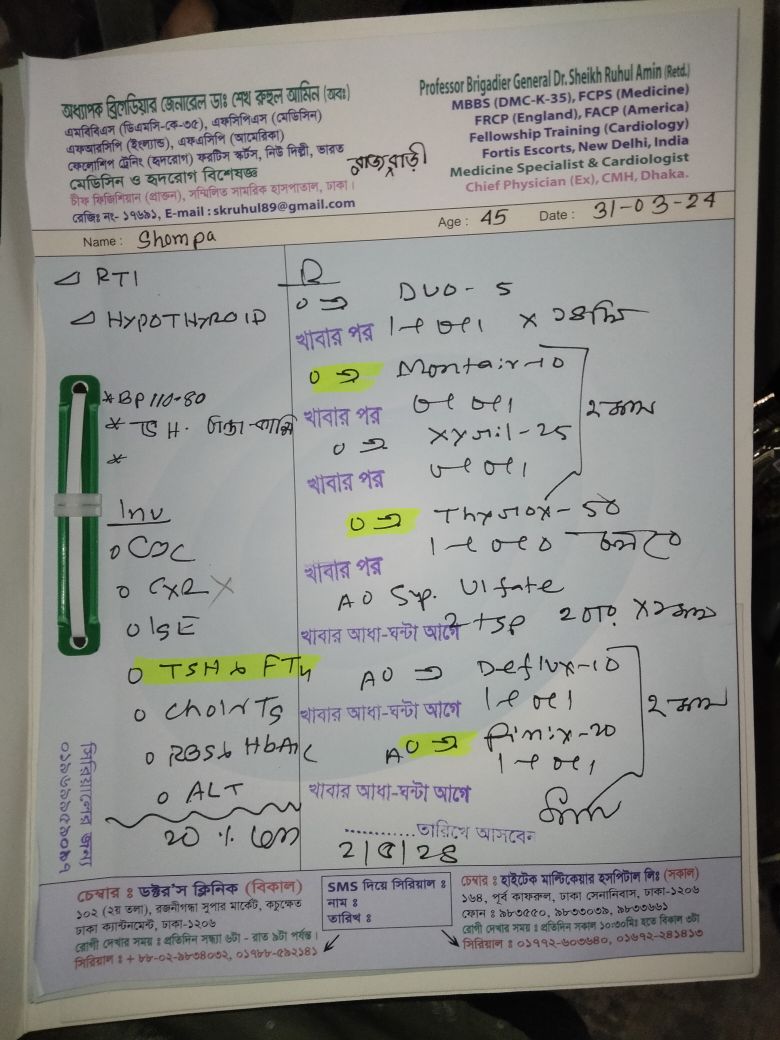 অধ্যাপক ব্রিগেডিয়ার জেনারেল ডাঃ শেখ রুহুল আমিন (অবঃ)
এমবিবিএস (ডিএমসি-কে-৩৫), এফসিপিএস (মেডিসিন)
এফআরসিপি (ইংল্যান্ড), এফএসিপি (আমেরিকা)
ফেলোশিপ ট্রেনিং (হৃদরোগ) ফরটিস স্কর্টস, নিউ দিল্লী, ভারত
মেডিসিন ও হৃদরোগ বিশেষজ্ঞ
চীফ ফিজিশিয়ান (প্রাক্তন), সম্মিলিত সামরিক হাসপাতাল, ঢাকা।
রেজিঃ নং- ১৭৬৯১, E-mail : skruhul89@gmail.com
রাজবাড়ী
Professor Brigadier General Dr. Sheikh Ruhul Amin (Retd.)
MBBS (DMC-K-35), FCPS (Medicine)
FRCP (England), FACP (America)
Fellowship Training (Cardiology)
Fortis Escorts, New Delhi, India
Medicine Specialist & Cardiologist
Chief Physician (Ex), CMH, Dhaka.
Name : Shompa Age : 45 Date : 31-03-24
RTI
HYPOTHYROID
*BP 110-80
*
*
Inv
CBC
CXR X
IgE
TSH & FT4
Chol & TG
RBS & HbA1C
ALT
20 %
সিরিয়ালের জন্য
DUO- 5
খাবার পর ১+০+১ X ১৪দিন
Montair-10
খাবার পর ০+০+১
Xyril-25
খাবার পর ০+০+১
২ মাস
Thyrox- 50
১+০+০ চলবে
খাবার পর
Syp. Ulfate
খাবার আধা-ঘন্টা আগে 2 tsp ২বার X ২মাস
Deflux-10
খাবার আধা-ঘন্টা আগে ১+০+১
Pinix-20
১+০+১
খাবার আধা-ঘন্টা আগে
২ মাস
............তারিখে আসবেন
চেম্বার ঃ ডক্টর'স ক্লিনিক (বিকাল)
১০২ (২য় তলা), রজনীগন্ধা সুপার মার্কেট, কচুক্ষেত
ঢাকা ক্যান্টনমেন্ট, ঢাকা-১২০৬
রোগী দেখার সময় ঃ প্রতিদিন সন্ধ্যা ৬টা - রাত ৯টা পর্যন্ত।
সিরিয়াল ঃ + ৮৮-০২-৯৮৩৪০৩২, ০১৭৮৮-৫৯২১৪১
SMS দিয়ে সিরিয়াল ঃ
নাম ঃ
তারিখ ঃ
চেম্বার ঃ হাইটেক মাল্টিকেয়ার হসপিটাল লিঃ (সকাল)
১৬৪, পূর্ব কাফরুল, ঢাকা সেনানিবাস, ঢাকা-১২০৬
ফোন ঃ ৯৮৩৫৫০, ৯৮৩৩০৩৯, ৯৮৩৩৬৬১
রোগী দেখার সময় ঃ প্রতিদিন সকাল ১০:৩০মিঃ হতে বিকাল ৩টা
সিরিয়াল ঃ ০১৭৭২-৬০৩৬৪০, ০১৬৭২-২৪১৪১৩